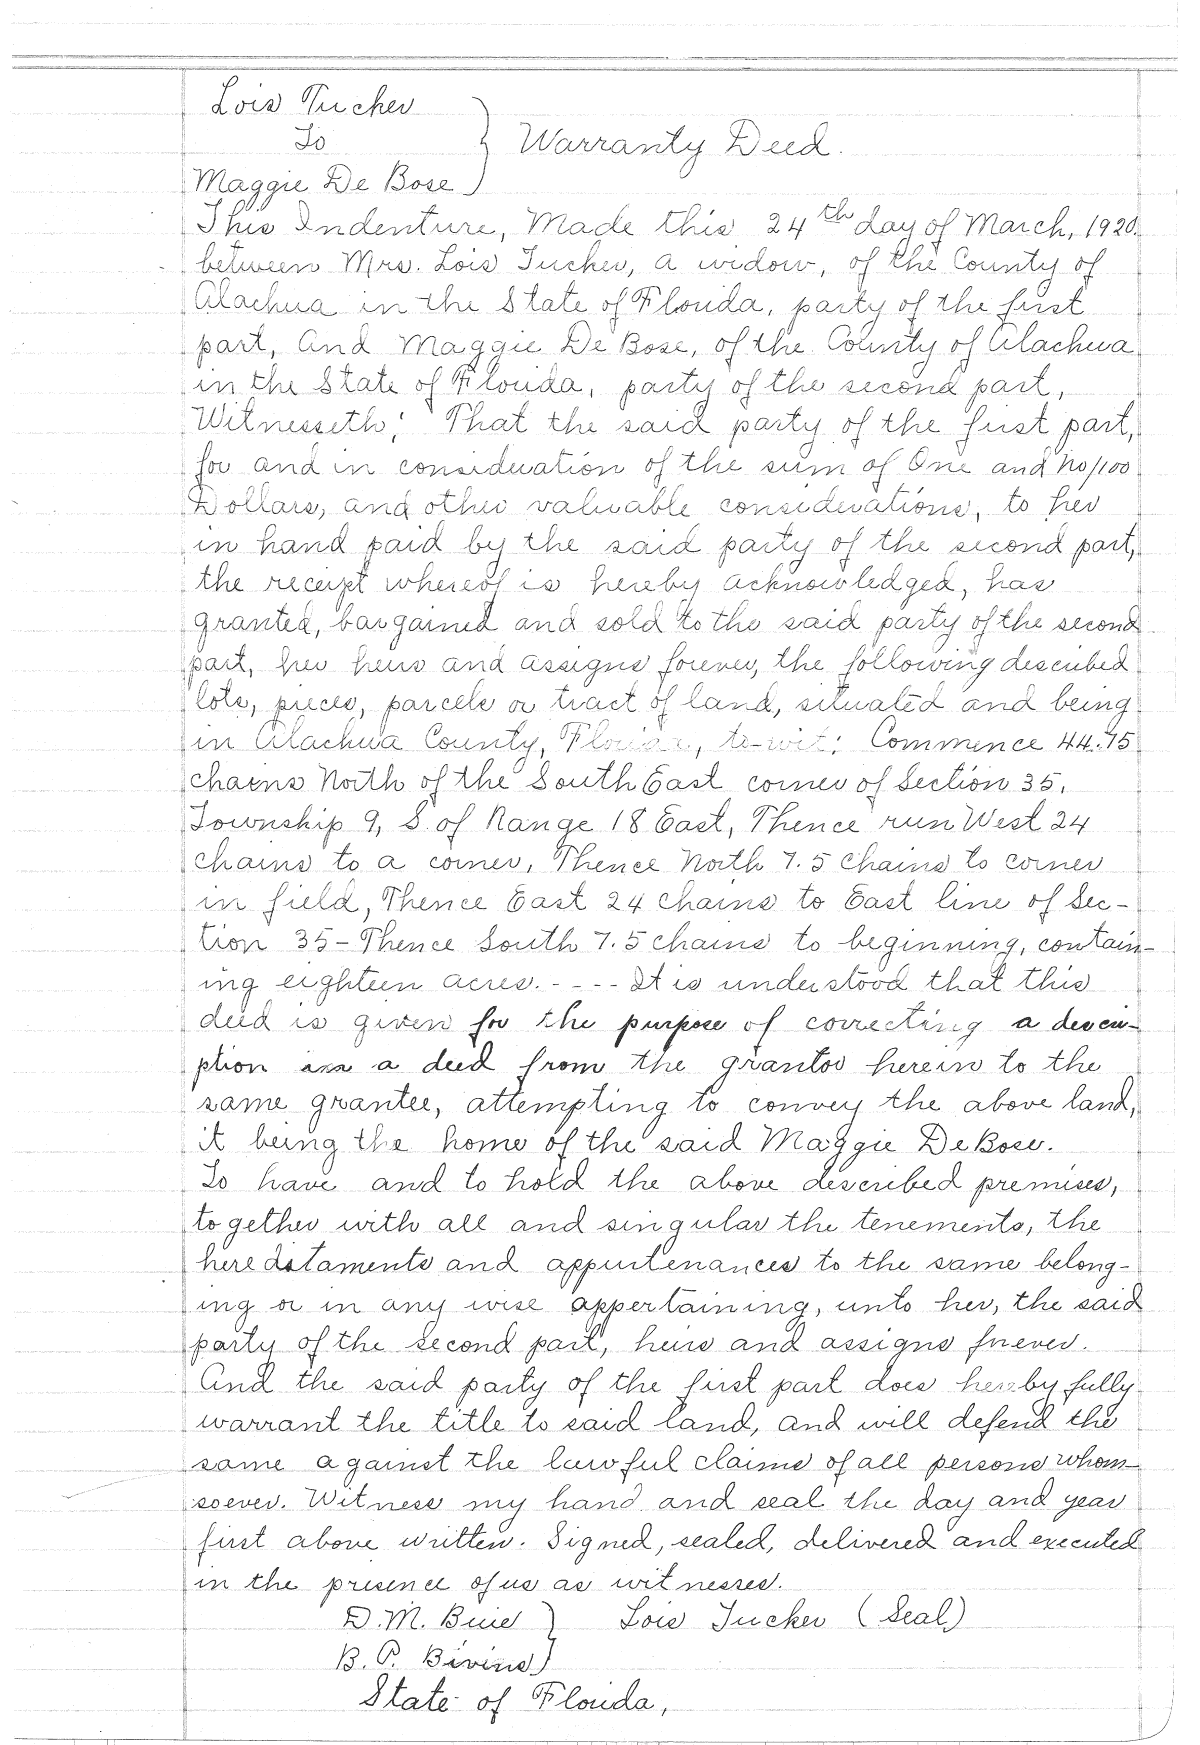 Lois Tucker
To
Warranty Deed.
Maggie De Bose
This Indenture, Made this 24th day of March, 1920.
between Mrs. Lois Tucker, a widow, of the County of
Alachua in the State of Florida, party of the first
part, And Maggie De Bose, of the County of Alachua
in the State of Florida, party of the second part,
Witnesseth; That the said party of the first part,
for and in consideration of the sum of One and no/100
Dollars, and other valuable considerations, to her
in hand paid by the said party of the second part,
the receipt whereof is hereby acknowledged, has
granted, bargained and sold to the said party of the second
part, her heirs and assigns forever, the following described
lots, pieces, parcels or tract of land, situated and being
in Alachua County, Florida, to-wit: Commence 44.75
chains North of the South East corner of Section 35,
Township 9, S. of Range 18 East, Thence run West 24
chains to a corner, Thence North 7.5 chains to corner
in field, Thence East 24 chains to East line of Sec-
tion 35- Thence South 7.5 chains to beginning, contain-
ing eighteen acres. - - - - It is understood that this
deed is given for the purpose of correcting a descri-
ption in a deed from the grantor herein to the
same grantee, attempting to convey the above land,
it being the home of the said Maggie De Bose.
To have and to hold the above described premises,
together with all and singular the tenements, the
heredataments and appurtenances to the same belong-
ing or in any wise appertaining, unto her, the said
party of the second part, heirs and assigns forever.
And the said party of the first part does hereby fully
warrant the title to said land, and will defend the
same against the lawful claims of all persons whom-
soever. Witness my hand and seal the day and year
first above written. Signed, sealed, delivered and executed
in the presence of us as witnesses.
D. M. Buie } Lois Tucker (Seal)
B. P. Bivins }
State of Florida,